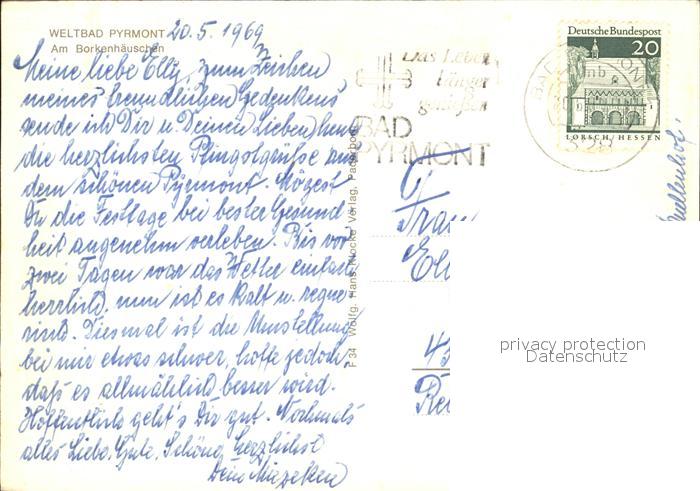 WELTBAD PYRMONT
Am Borkenhäuschen
20.5.1969
Meine liebe Elly, zum Zeichen
meines freundlichen Gedenkens
sende ich Dir u. Deinen Lieben heute
die herzlichsten Pfingstgrüße aus
dem schönen Pyrmont. Mögest
Du die Festtage bei bester Gesund-
heit angenehm verleben. Bis vor
zwei Tagen war das Wetter einfach
herrlich, nun ist es kalt u. regne-
risch. Diesmal ist die Umstellung
bei mir etwas schwer, hoffe jedoch,
daß es allmählich besser wird.
Hoffentlich geht's Dir gut. Nochmals
alles Liebe, Gute, Schöne, herzlichst
Dein
F 34 Wolfg. Hans Klocke Verlag, Paderborn
Das Leben
länger
genießen
BAD
PYRMONT
Deutsche Bundespost
20
LORSCH/HESSEN
328
Frau
privacy protection
Datenschutz